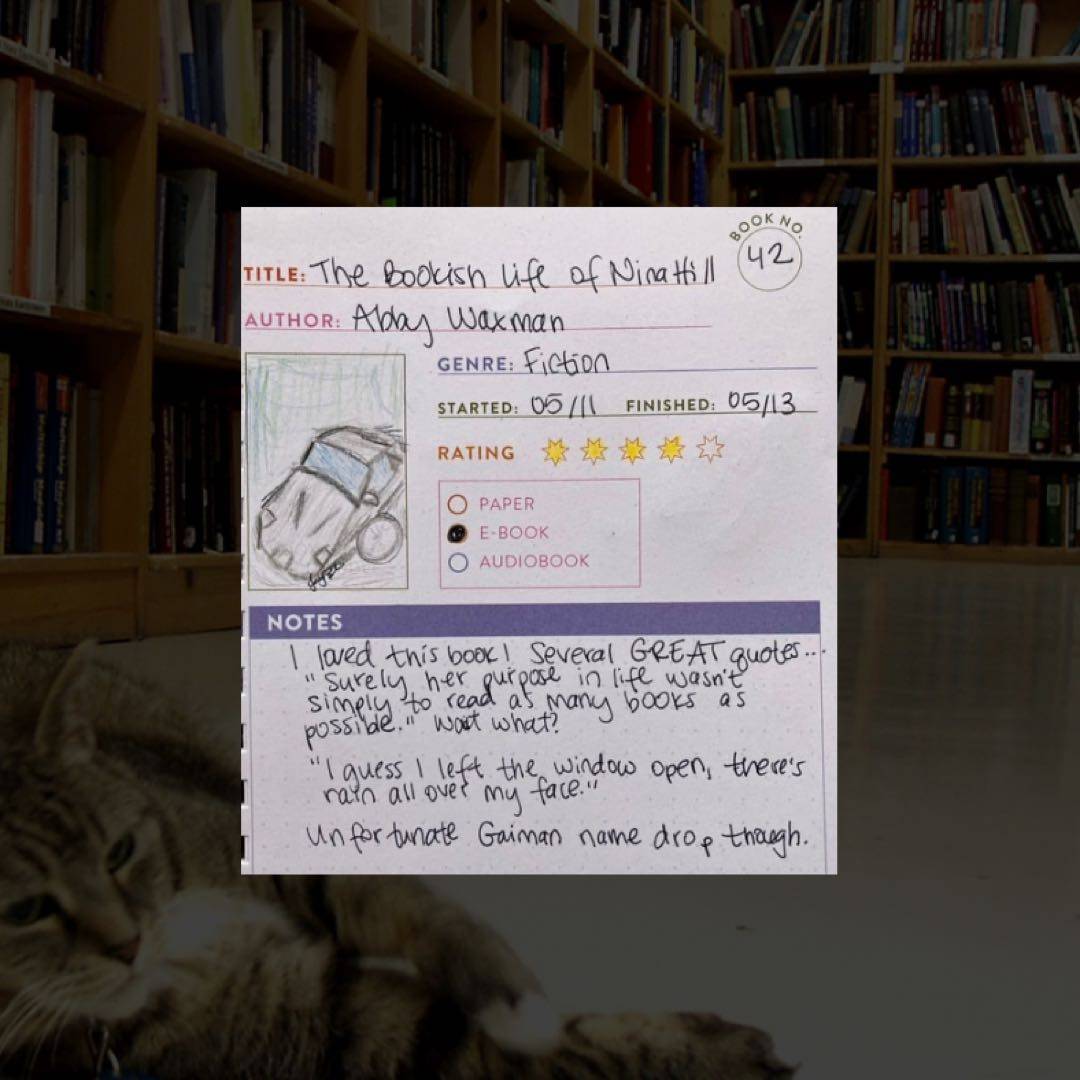 BOOK NO.
42
TITLE: The Bookish Life of Nina Hill
AUTHOR: Abby Waxman
GENRE: Fiction
STARTED: 05/11 FINISHED: 05/13
RATING
PAPER
E-BOOK
AUDIOBOOK
NOTES
I loved this book! Several GREAT quotes...
"Surely her purpose in life wasn't
simply to read as many books as
possible." Wait what?
"I guess I left the window open, there's
rain all over my face."
Unfortunate Gaiman name drop though.